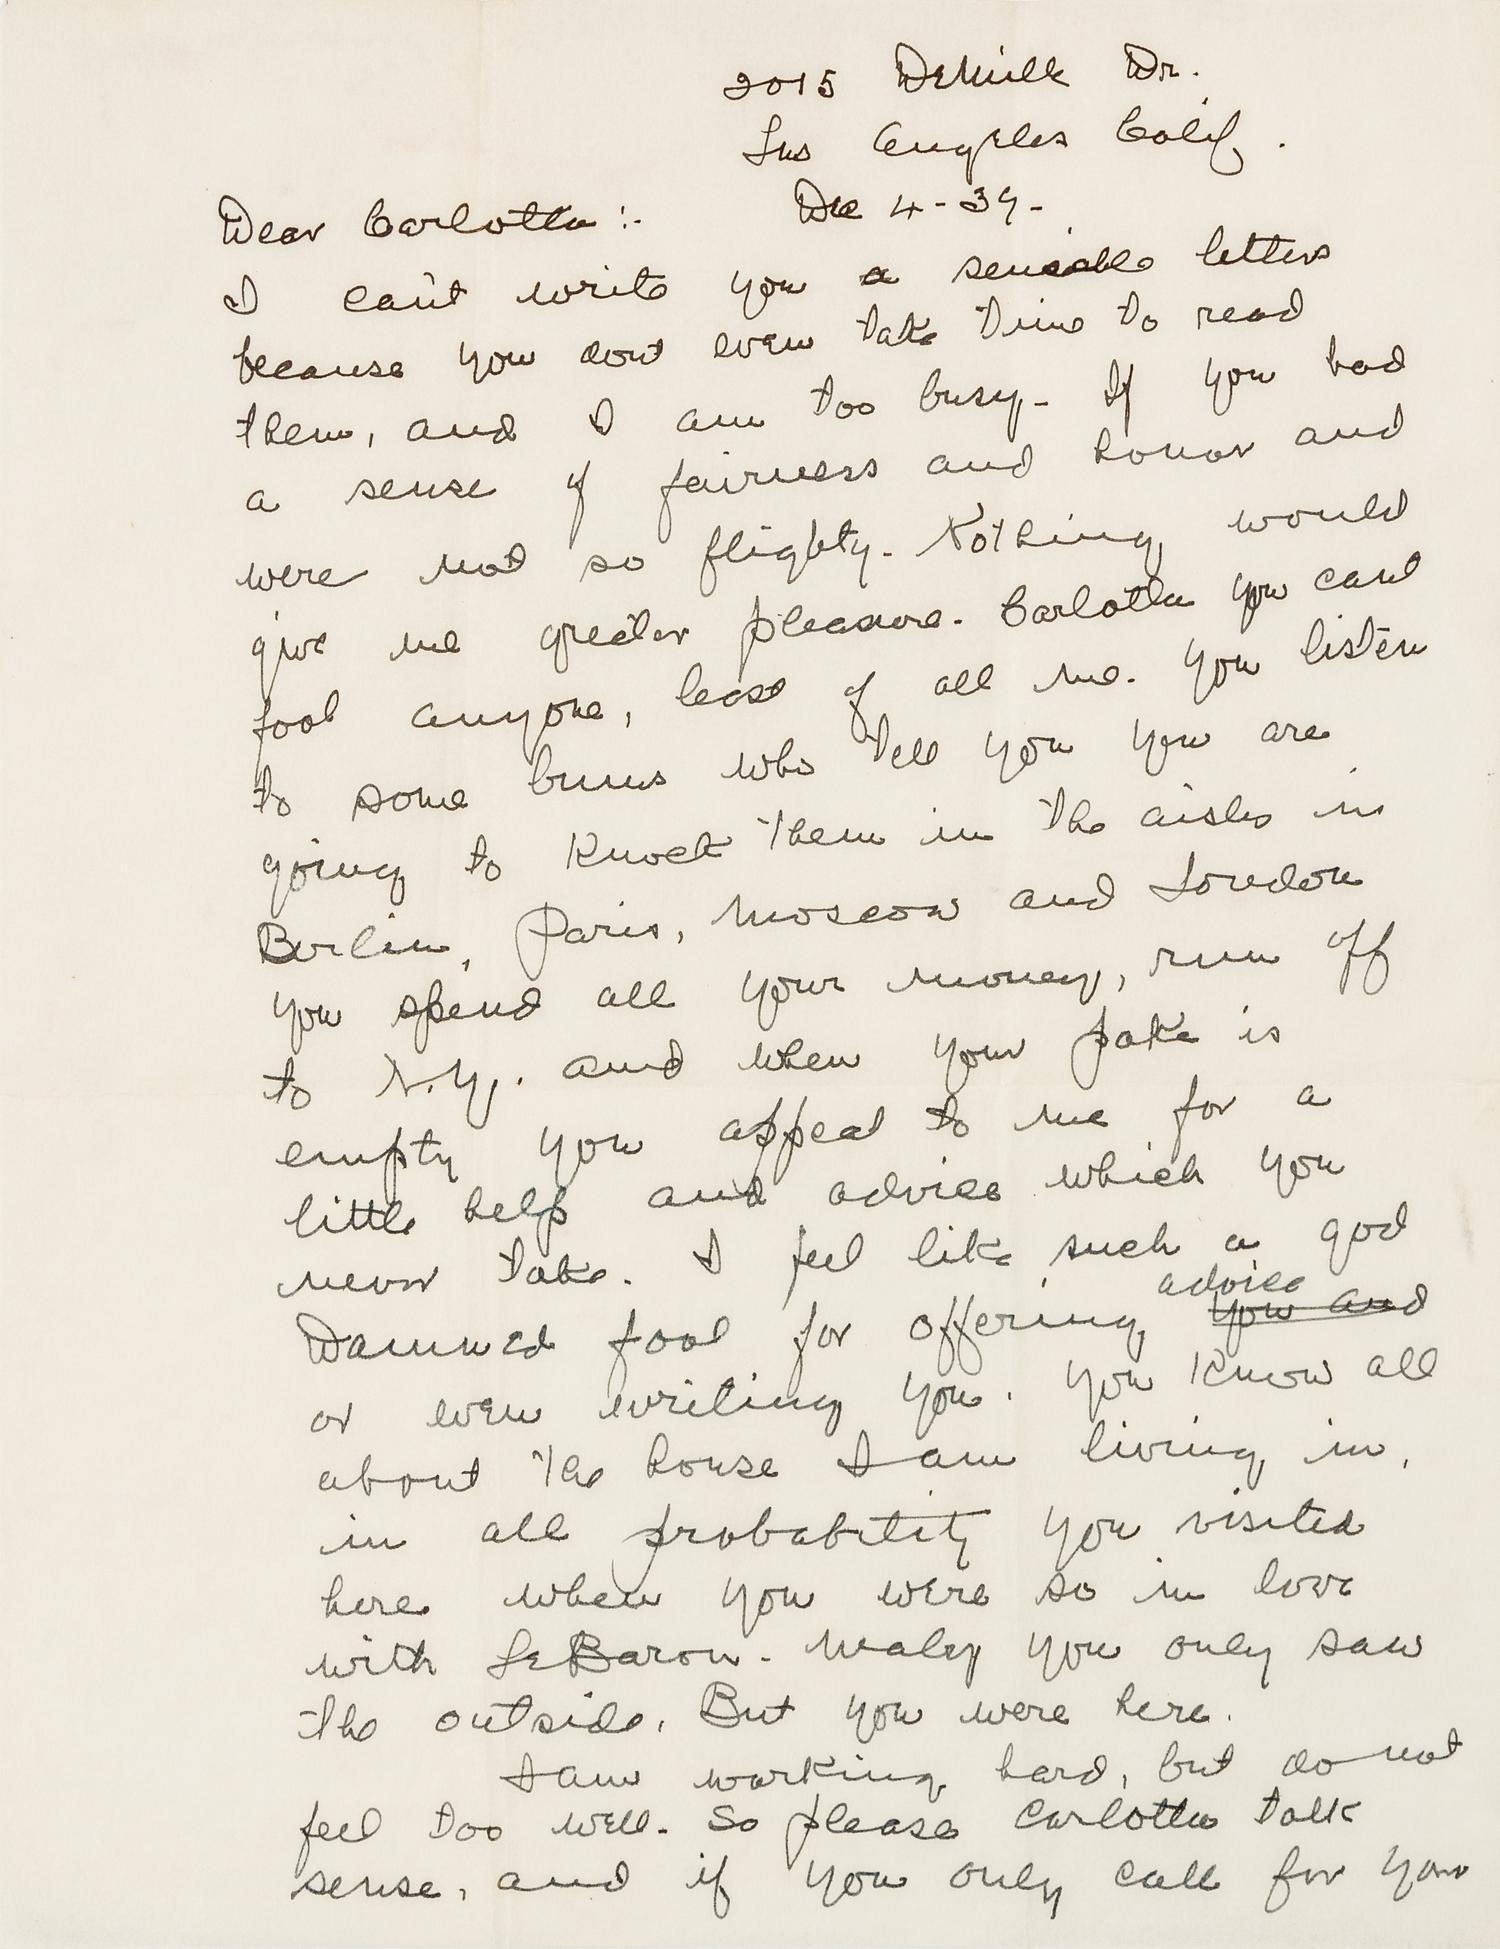 2015 DeMille Dr.
Los Angeles Calif.
Dec 4-39-
Dear Carlotta :-
I can't write you a sensible letters
because you dont even take time to read
them, and I am too busy- If you had
a sense of fairness and honor and
were not so flighty- Nothing would
give me greater pleasure. Carlotta you cant
fool anyone, least of all me. You listen
to some bums who tell you you are
going to knock them in the aisles in
Berlin, Paris, Moscow and London
you spend all your money, run off
to N.Y. and when your poke is
empty you appeal to me for a
little help and advice which you
never take. I feel like such a god
Damned fool for offering advice ~~you and~~
or even writing you. You know all
about the house I am living in,
in all probability you visited
here when you were so in love
with LeBaron- Maby you only saw
the outside. But you were here.
I am working hard, but do not
feel too well- So please Carlotta talk
sense, and if you only call for your